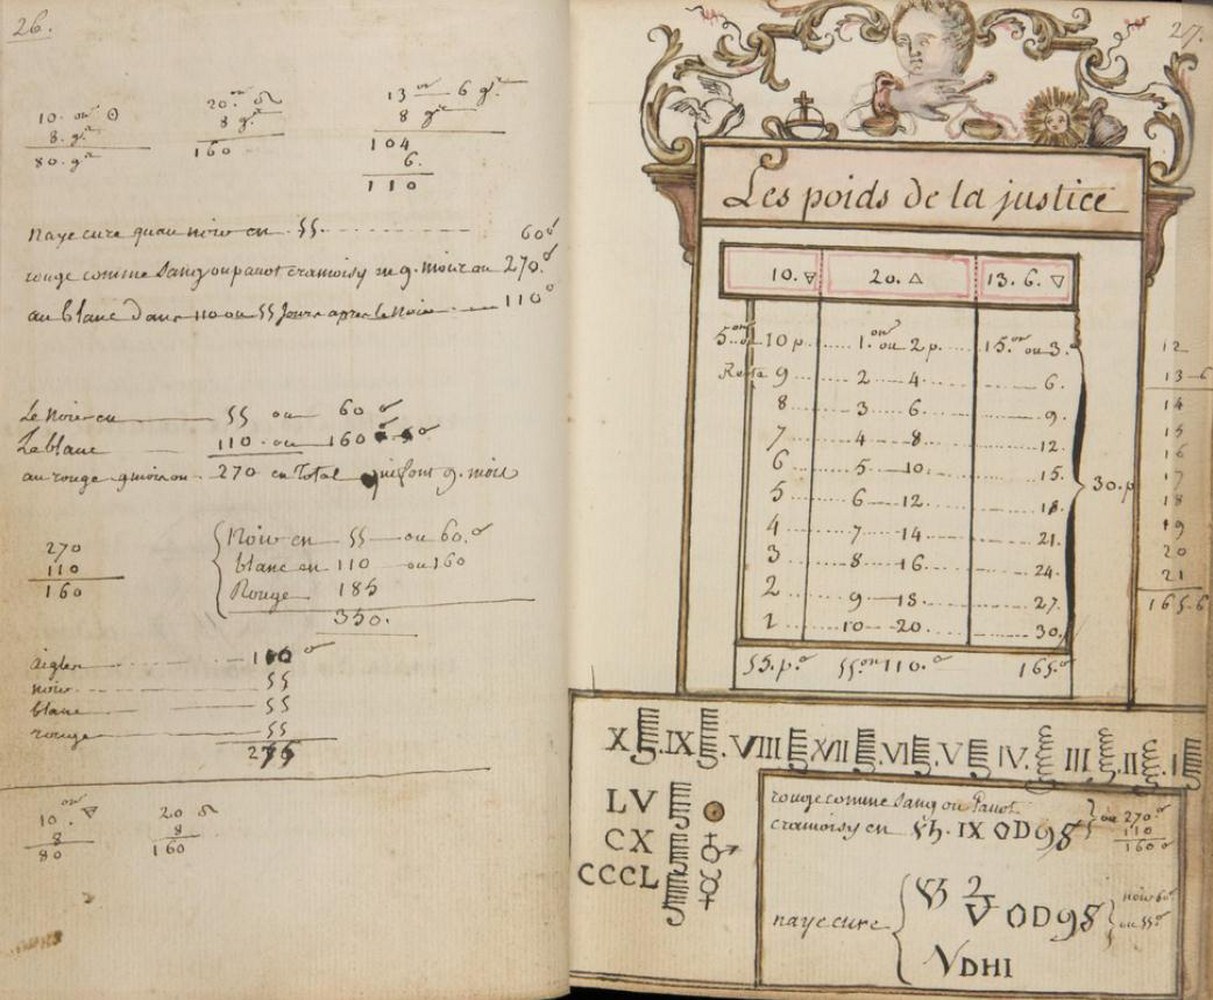 26.
10. on ☉
8. g.
80. g
20. on ♌
8 g.
160
13 on — 6 g.
8 g
104
6.
110
naye cure quau noir en . 55. 60 ♂
rouge comme sang ou pauot cramoisy en 9. mois ou 270. ♂
au blanc dans 110 ou 55 Jours apres le Noir 110 ♂
Le Noir en 55 ou 60 ♂
Le blanc 110 . ou 160 ♂
au rouge 9 mois ou 270 en Total qui font 9. mois
270
110
160
Noir en 55 ou 60. ♂
blanc en 110 ou 160
Rouge 185
350.
aigles 110 ♂
noir 55
blanc 55
rouge 55
275
10. on
8
80
20 ♌
8
160
27.
Les poids de la justice
10. 🜃 20. △ 13. 6. ▽
5. on 10 p. 1. on ou 2 p. 15. on ou 3.
Reste 9 2 4. 6.
8 3 6. 9.
7 4 8. 12.
6 5 10. 15.
5 6 12. 18.
4 7 14. 21.
3 8 16. 24.
2 9 18. 27.
1 10 20. 30.
30. p
55. p. 55 on 110. 165.
12
13-6
14
15
16
17
18
19
20
21
165.6
X .IX .VIII .VII .VI .V IV. III .II .I
LV ☉
CX ♂
CCCL ☿
rouge comme sang ou Pauot
cramoisy en IX OD98 ou 270 ♂
110
160 ♂
naye cure
V OD98 noir 60 ♂
ou 55 ♂
VDHI